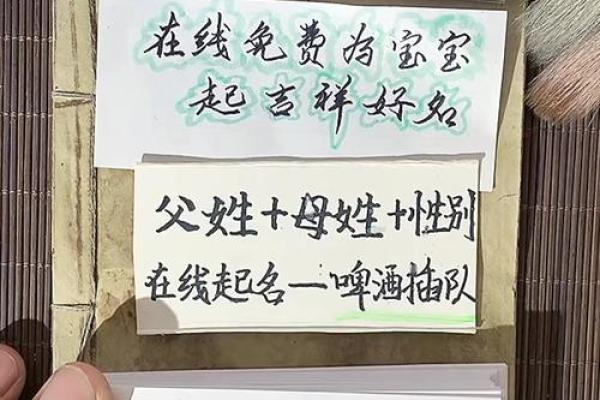 在线免费为宝宝
起吉祥好名
父姓+母姓+性别
在线起名一啤酒插队